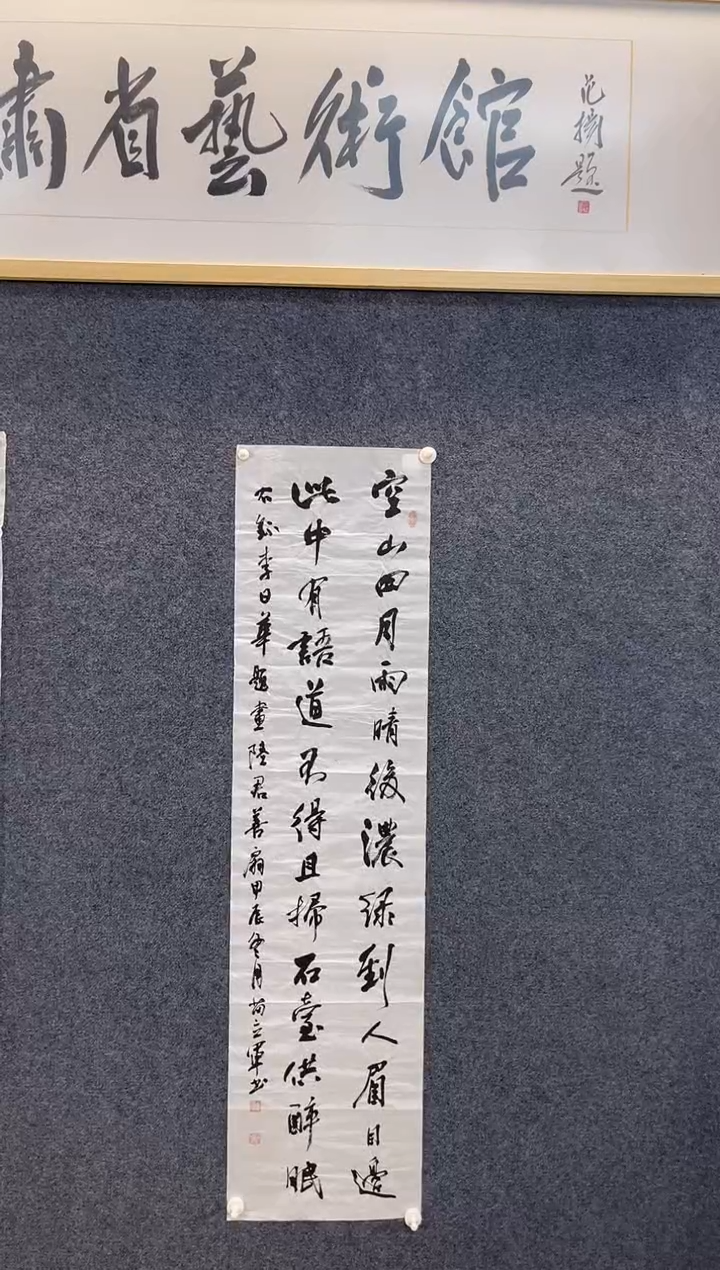 肅省藝術館
題
空山四月雨晴後濃綠到人眉目邊
此中有語道不得且掃石臺供醉眠
右錄李日華題畫陸君善扇甲辰冬月苟立軍书